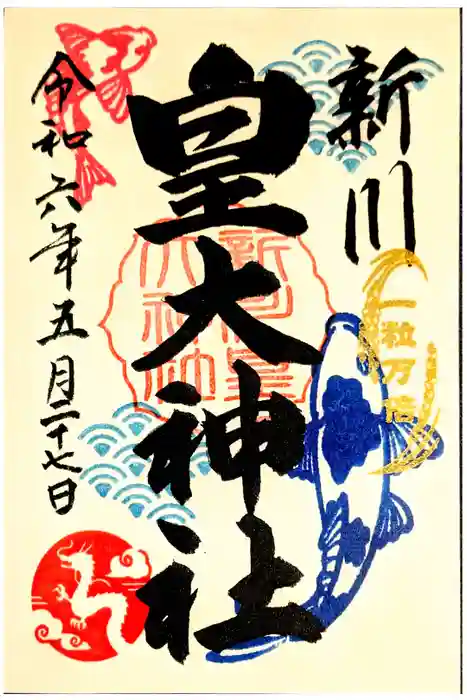 新川
一粒万倍
皇大神社
新川皇大神社
令和六年五月二十七日